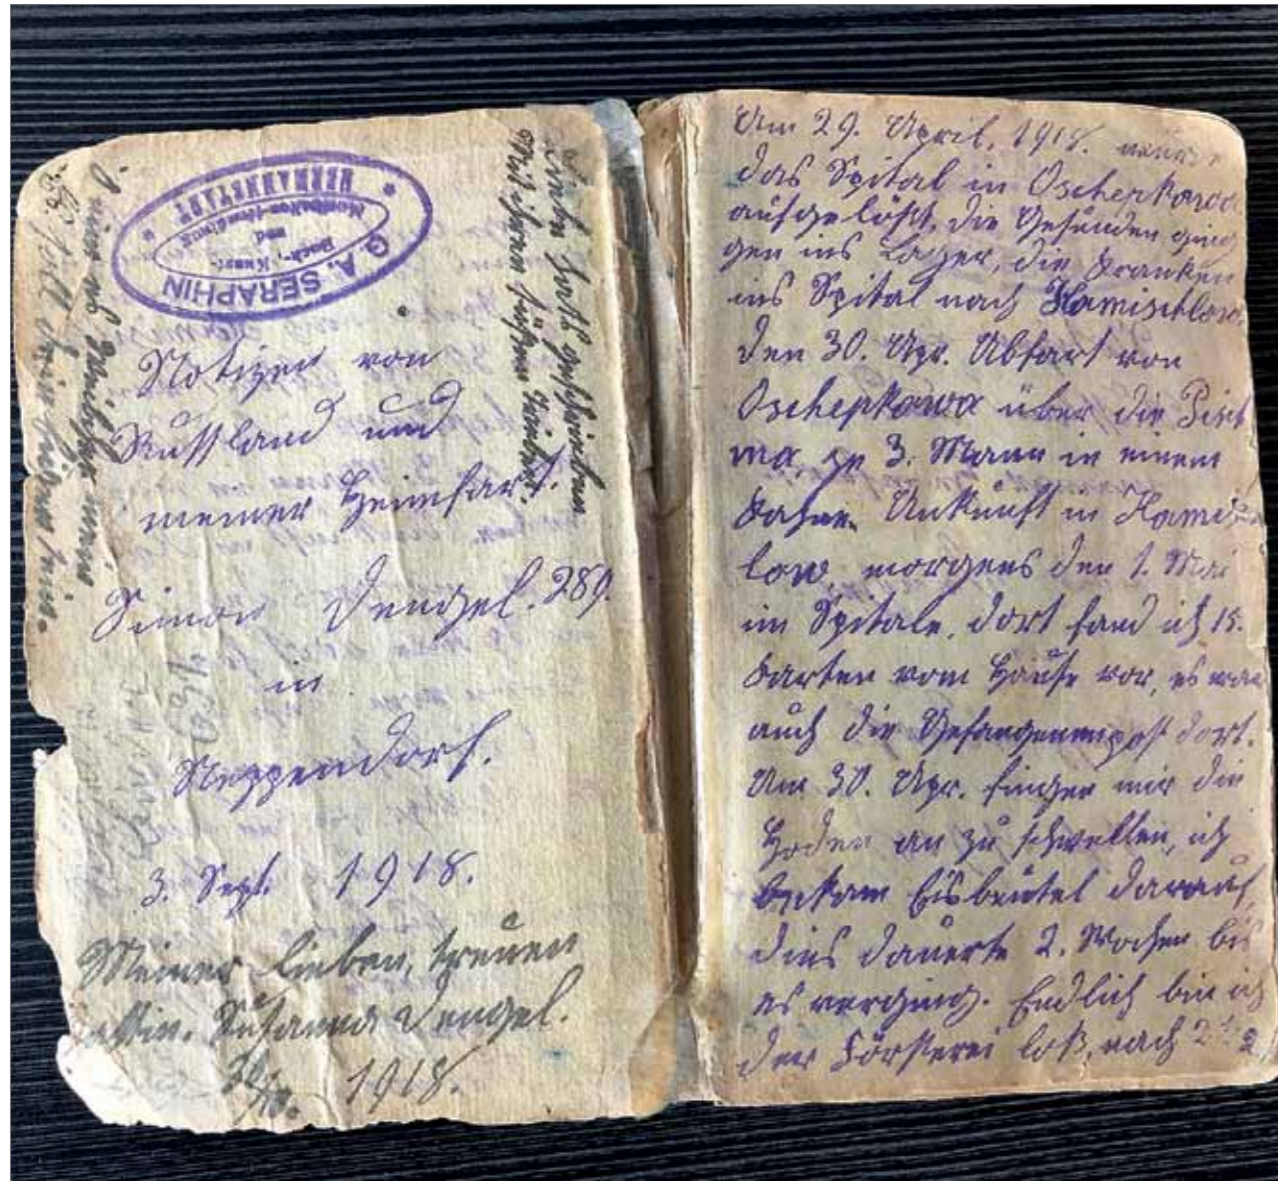 G. A. SERAPHIN
Buch-, Kunst-
und
Musikalien-Handlung
* HERMANNSTADT *
Notizen von
Russland und
meiner Heimfart.
Simon Dengel. 289.
in
Neppendorf.
3. Sept. 1918.
Meiner lieben, treuen
Gattin. Susanna Dengel.
1918.
Am 29. April. 1918. wurde
das Spital in Oschepkowa
aufgelößt, die Gesunden gin
gen ins Lager, die Kranken
ins Spital nach Kamischlow.
Den 30. Apr. Abfart von
Oschepkowa über die Pisch
ma, zu 3. Mann in einem
Kahne. Ankunft in Kamisch
low, morgens den 1. Mai
im Spitale, dort fand ich 15.
Karten vom Hause vor, es war
auch die Gefangenenpost dort.
Am 30. Apr. fingen mir die
Hoden an zu schwellen, ich
bekam Eisbeutel darauf,
dies dauerte 2. Wochen bis
es verging. Endlich bin ich
der Försterei loß, nach 2